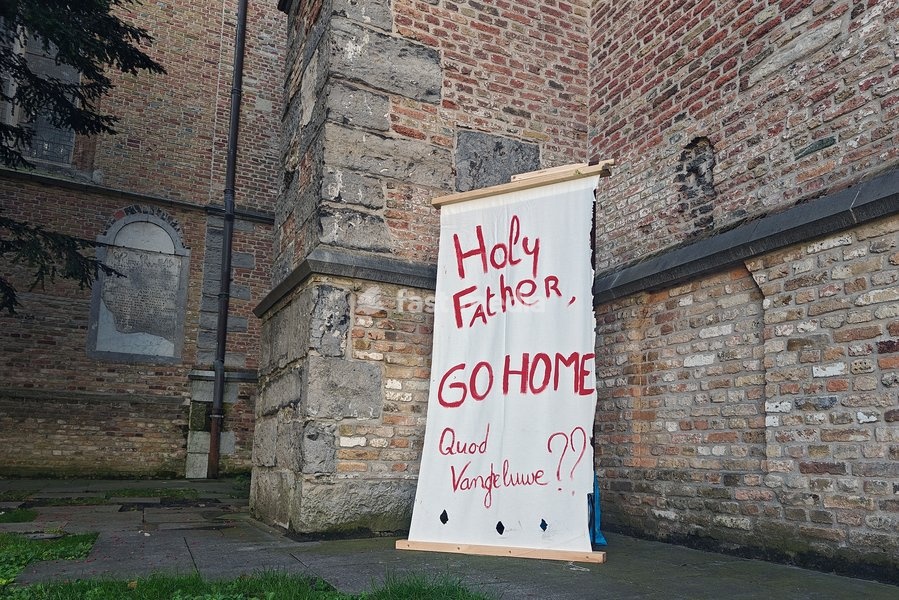 Holy
Father,
GO HOME
Quod
Vangheluwe ??